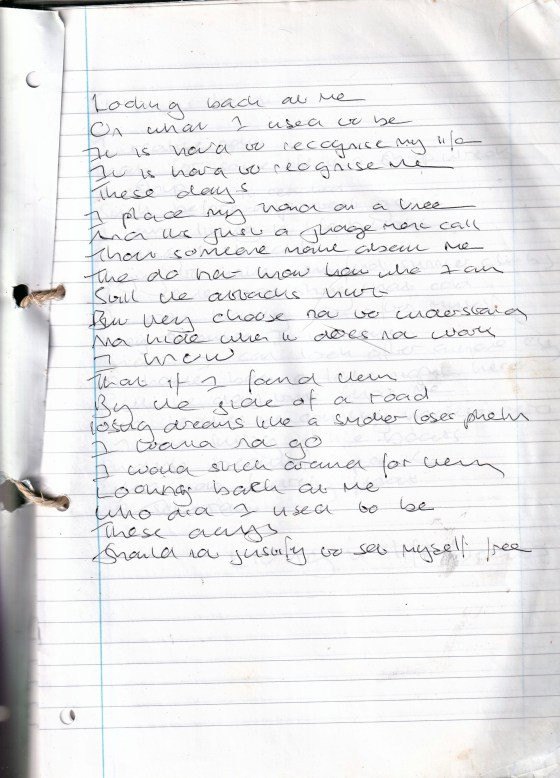 Looking back at me
On what I used to be
It is hard to recognise my life
It is hard to recognise me
These days
I place my hand on a tree
And its just a more call
Than someone made about me
The do not know how who I am
Still the attacks hurt
But they choose not to understand
And hide when it does not work
I know
That if I found them
By the side of a road
losing dreams like a smoker loses phelm
I would not go
I would stick around for them
Looking back at me
Who did I used to be
These days
Should not justify to set myself free